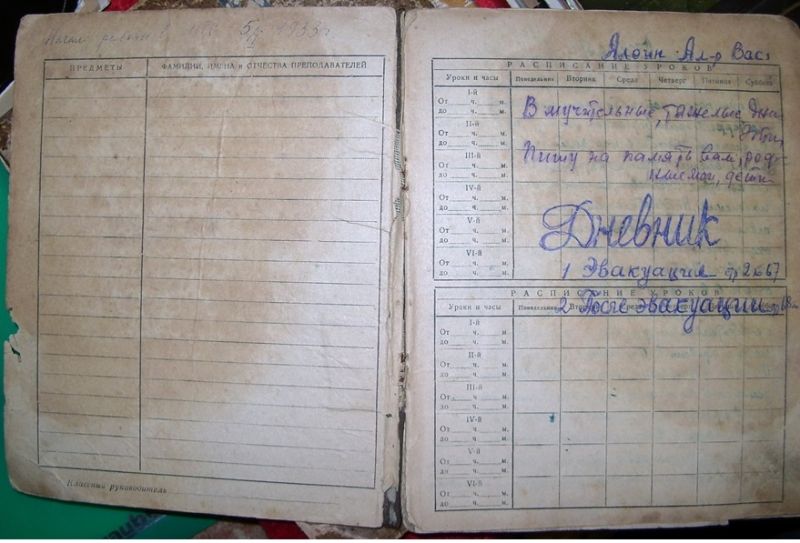 5/II 1933 г
ПРЕДМЕТЫ ФАМИЛИИ, ИМЕНА и ОТЧЕСТВА ПРЕПОДАВАТЕЛЕЙ
Классный руководитель
Ал-р Вас.
РАСПИСАНИЕ УРОКОВ
Уроки и часы Понедельник Вторник Среда Четверг Пятница Суббота
I-й
От ч. м.
до ч. м.
II-й
От ч. м.
до ч. м.
III-й
От ч. м.
до ч. м.
IV-й
От ч. м.
до ч. м.
V-й
От ч. м.
до ч. м.
VI-й
От ч. м.
до ч. м.
В мучительные, тяжелые дни
Пишу на память вам, род-
ные мои, дети
Дневник
1 Эвакуация стр 2 по 67
РАСПИСАНИЕ УРОКОВ
Уроки и часы Понедельник
2 После эвакуации
I-й
От ч. м.
до ч. м.
II-й
От ч. м.
до ч. м.
III-й
От ч. м.
до ч. м.
IV-й
От ч. м.
до ч. м.
V-й
От ч. м.
до ч. м.
VI-й
От ч. м.
до ч. м.